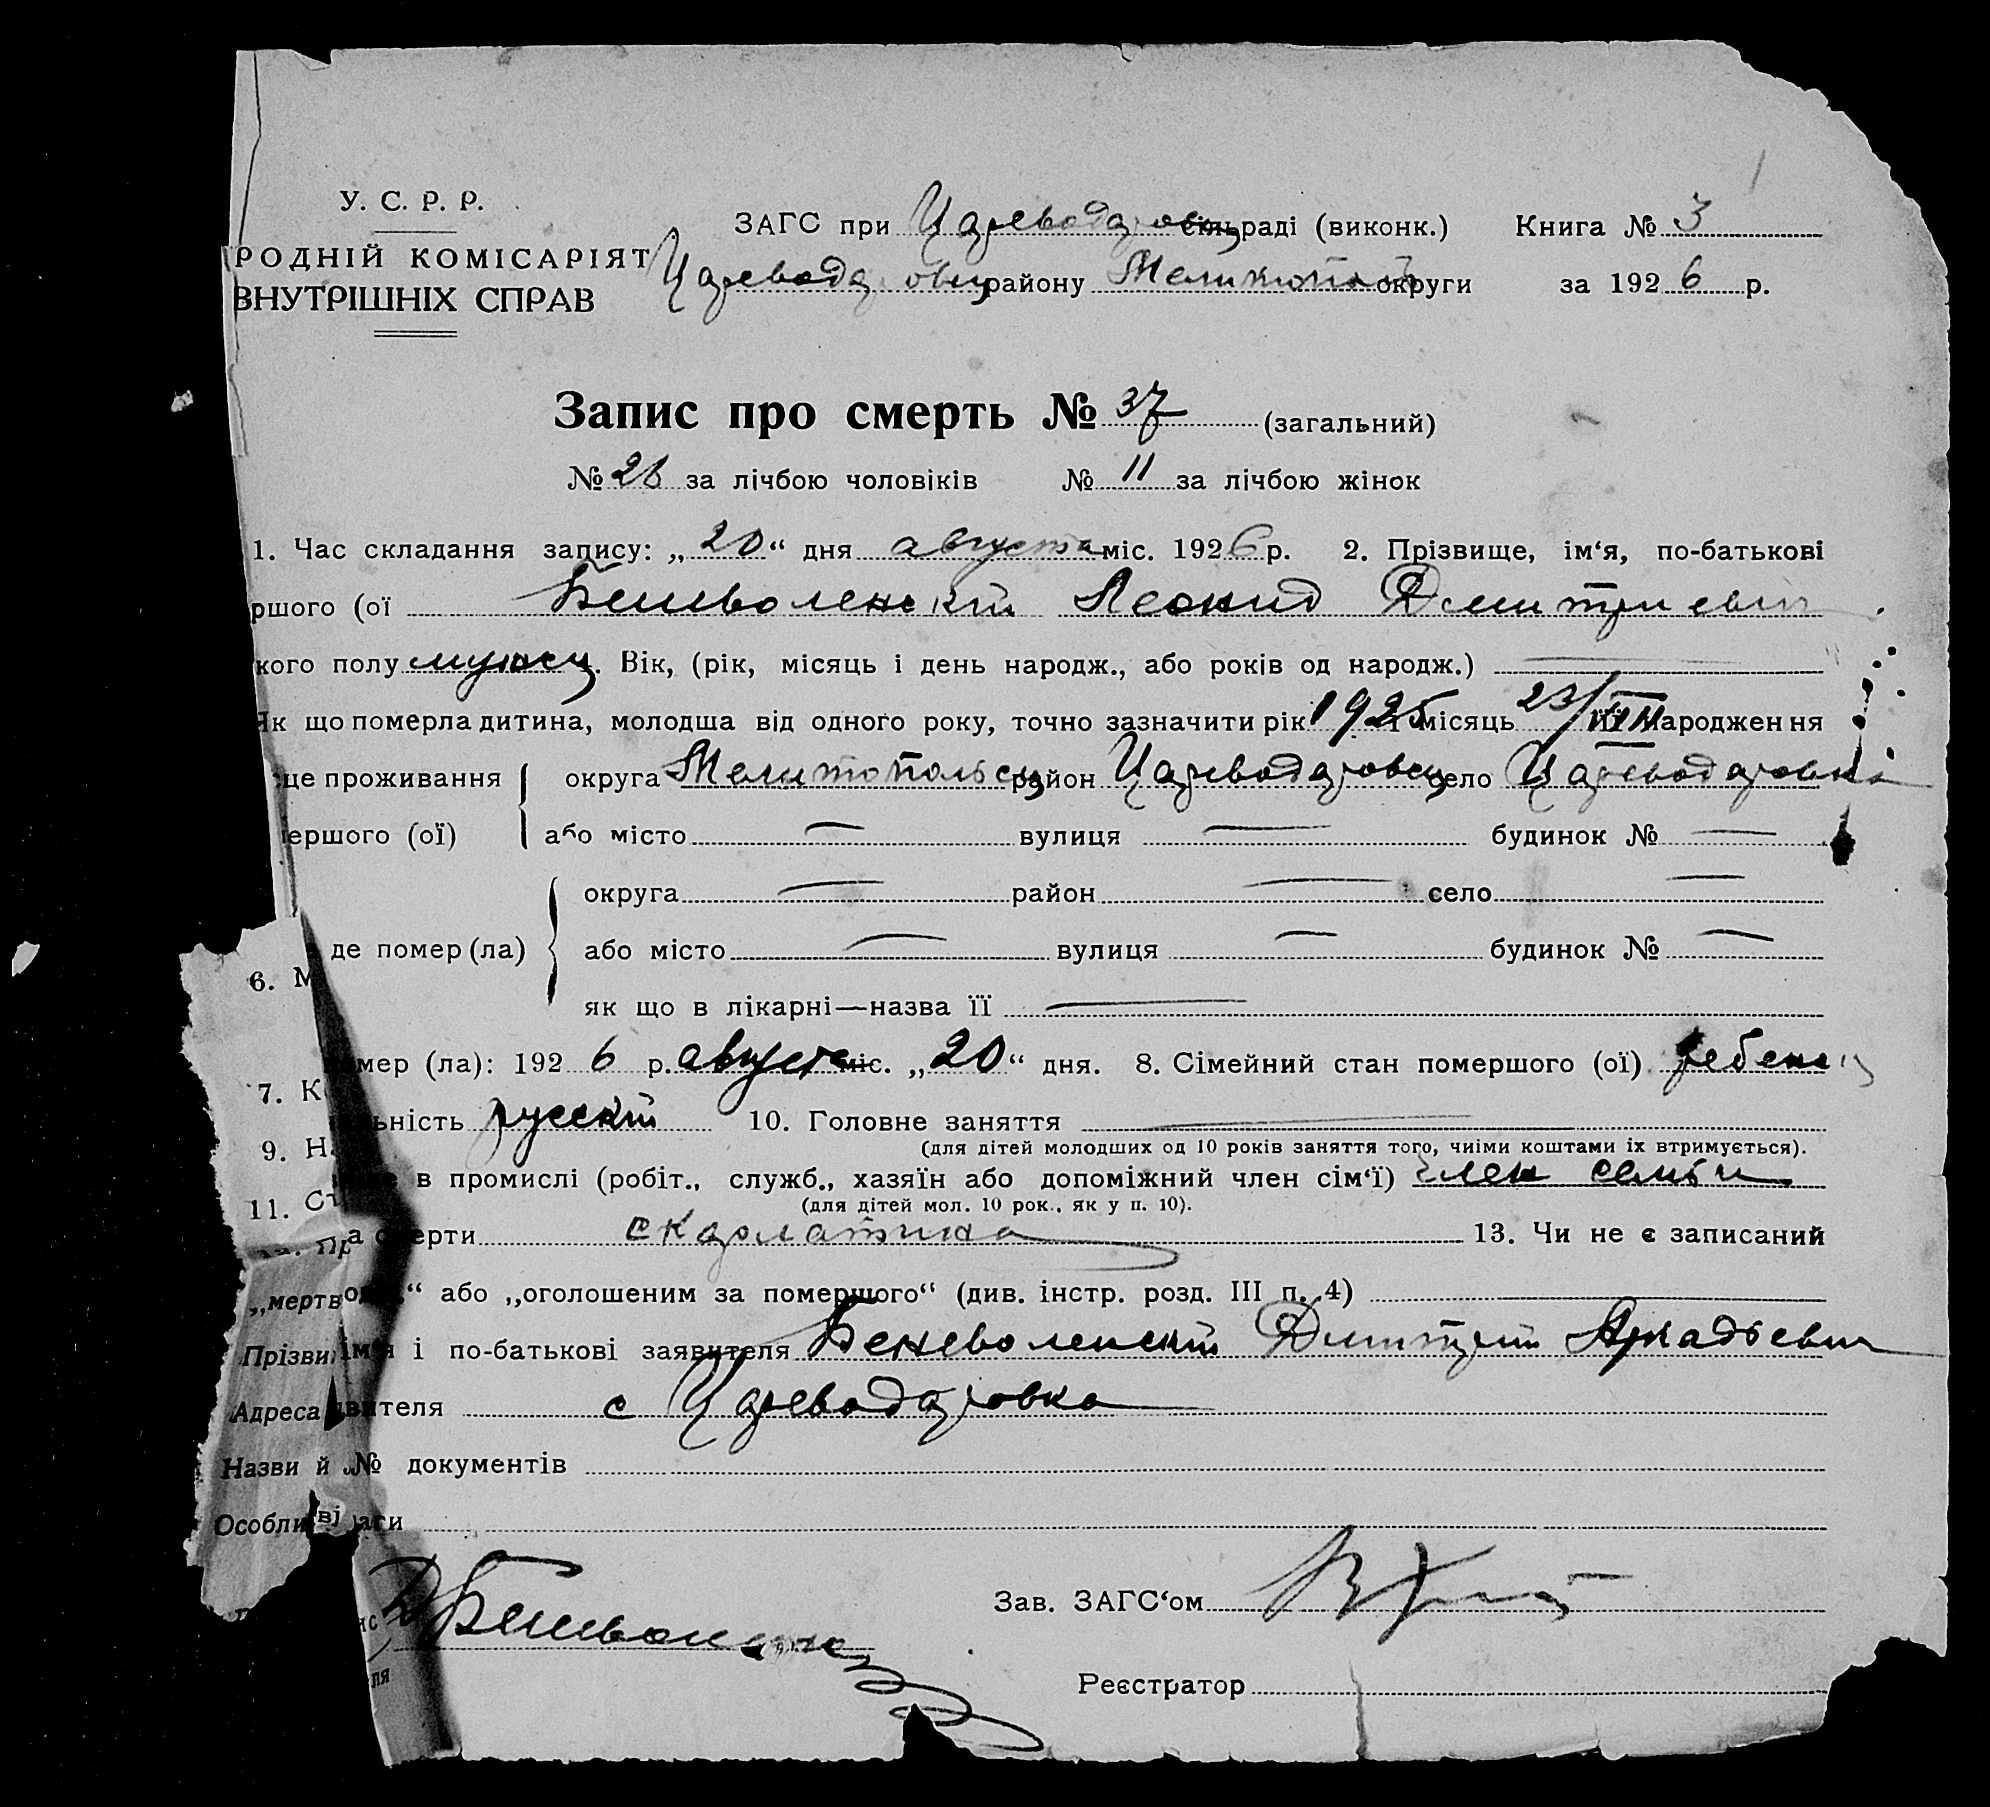 У. С. Р. Р.
РОДНІЙ КОМІСАРІЯТ
ВНУТРІШНІХ СПРАВ
ЗАГС при Цареводаровск. сільраді (виконк.) Книга № 3
Цареводаровск. району Мелитополь округи за 1926 р.
Запис про смерть № 37 (загальний)
№ 26 за лічбою чоловіків № 11 за лічбою жінок
1. Час складання запису: „20“ дня августа міс. 1926 р. 2. Прізвище, ім‘я, по-батькові
ршого (ої Беневоленский Леонид Дмитриевич
кого полу мужск. Вік, (рік, місяць і день народж., або років од народж.) —
Як що померла дитина, молодша від одного року, точно зазначити рік 1925 місяць 23/VIII народження
це проживання округа Мелитопольск район Цареводаровск село Цареводаровка
ершого (ої) або місто — вулиця — будинок № —
округа — район — село —
6. М де помер (ла) або місто — вулиця — будинок № —
як що в лікарні—назва її —
7. К мер (ла): 1926 р. августа міс. „20“ дня. 8. Сімейний стан помершого (ої) ребенок
9. На ьність русский 10. Головне заняття —
(для дітей молодших од 10 років заняття того, чиїми коштами їх втримується).
11. Ст в промислі (робіт., служб., хазяїн або допоміжний член сім‘ї) член семьи
(для дітей мол. 10 рок., як у п. 10).
Пр а смерти скарлатина 13. Чи не є записаний
„мертв “ або „оголошеним за помершого“ (див. інстр. розд. III п. 4)
Прізви ім‘я і по-батькові заявителя Беневоленский Дмитрий Аркадьевич
Адреса явителя с Цареводаровка
Назви й № документів
Особливі ваги
Д Беневоленский
Зав. ЗАГС‘ом
Реєстратор